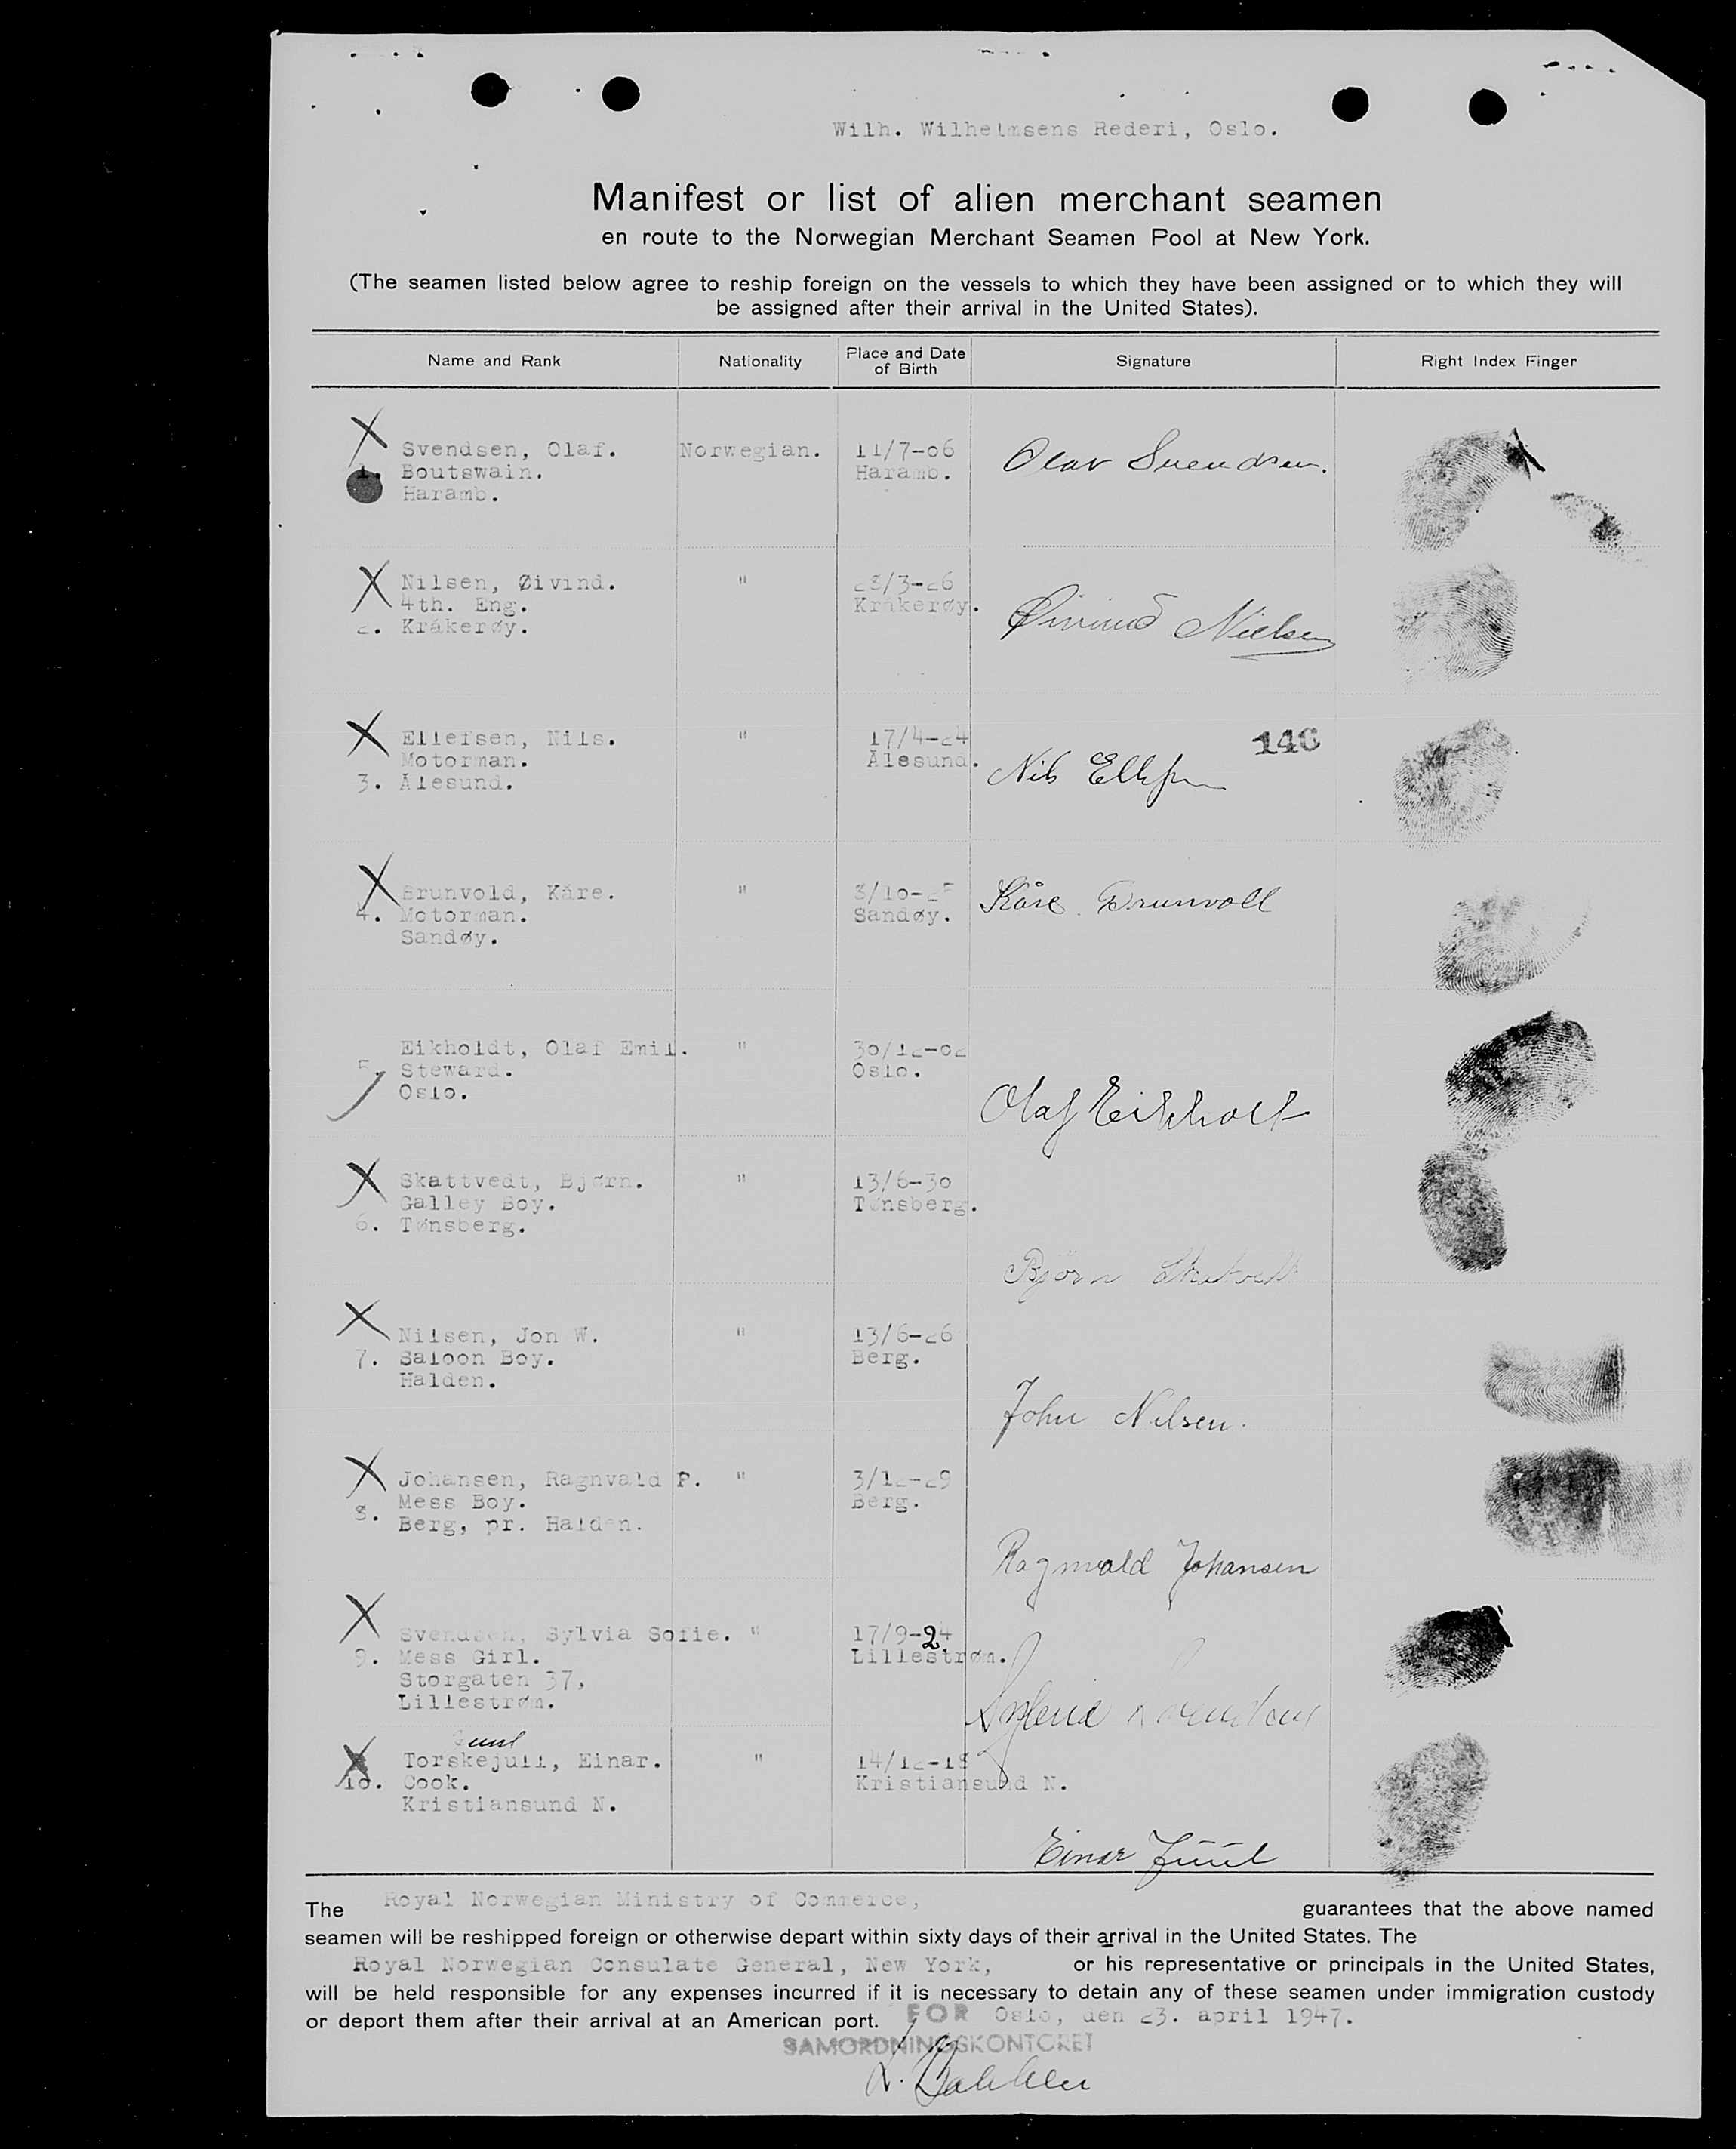 Wilh. Wilhelmsens Rederi, Oslo.
Manifest or list of alien merchant seamen
en route to the Norwegian Merchant Seamen Pool at New York.
(The seamen listed below agree to reship foreign on the vessels to which they have been assigned or to which they will
be assigned after their arrival in the United States).
Name and Rank Nationality Place and Date of Birth Signature Right Index Finger
Svendsen, Olaf. Norwegian. 11/7-06
1. Boutswain. Haramb. Olav Svendsen.
Haramb.
Nilsen, Øivind. " 28/3-26
4th. Eng. Kråkerøy.
2. Kråkerøy. Øivind Nielsen
Ellefsen, Nils. " 17/4-24 146
Motorman. Ålesund.
3. Ålesund. Nils Ellefsen
Brunvold, Kåre. " 8/10-25 Kåre Brunvoll
4. Motorman. Sandøy.
Sandøy.
Eikholdt, Olaf Emil. " 30/12-02
5. Steward. Oslo.
Oslo. Olaf Eikholt
Skattvedt, Bjørn. " 13/6-30
Galley Boy. Tønsberg.
6. Tønsberg.
Bjørn Skatvedt
Nilsen, Jon W. " 13/6-26
7. Saloon Boy. Berg.
Halden.
John Nilsen.
Johansen, Ragnvald P. " 3/12-29
8. Mess Boy. Berg.
Berg, pr. Halden.
Ragnvald Johansen
Svendsen, Sylvia Sofie. " 17/9-24
9. Mess Girl. Lillestrøm.
Storgaten 37,
Lillestrøm.
Sylvia Svendsen
Juul
Torskejull, Einar. " 14/12-18
10. Cook. Kristiansund N.
Kristiansund N.
Einar Juul
The Royal Norwegian Ministry of Commerce, guarantees that the above named
seamen will be reshipped foreign or otherwise depart within sixty days of their arrival in the United States. The
Royal Norwegian Consulate General, New York, or his representative or principals in the United States,
will be held responsible for any expenses incurred if it is necessary to detain any of these seamen under immigration custody
or deport them after their arrival at an American port. FOR Oslo, den 23. april 1947.
SAMORDNINGSKONTORET